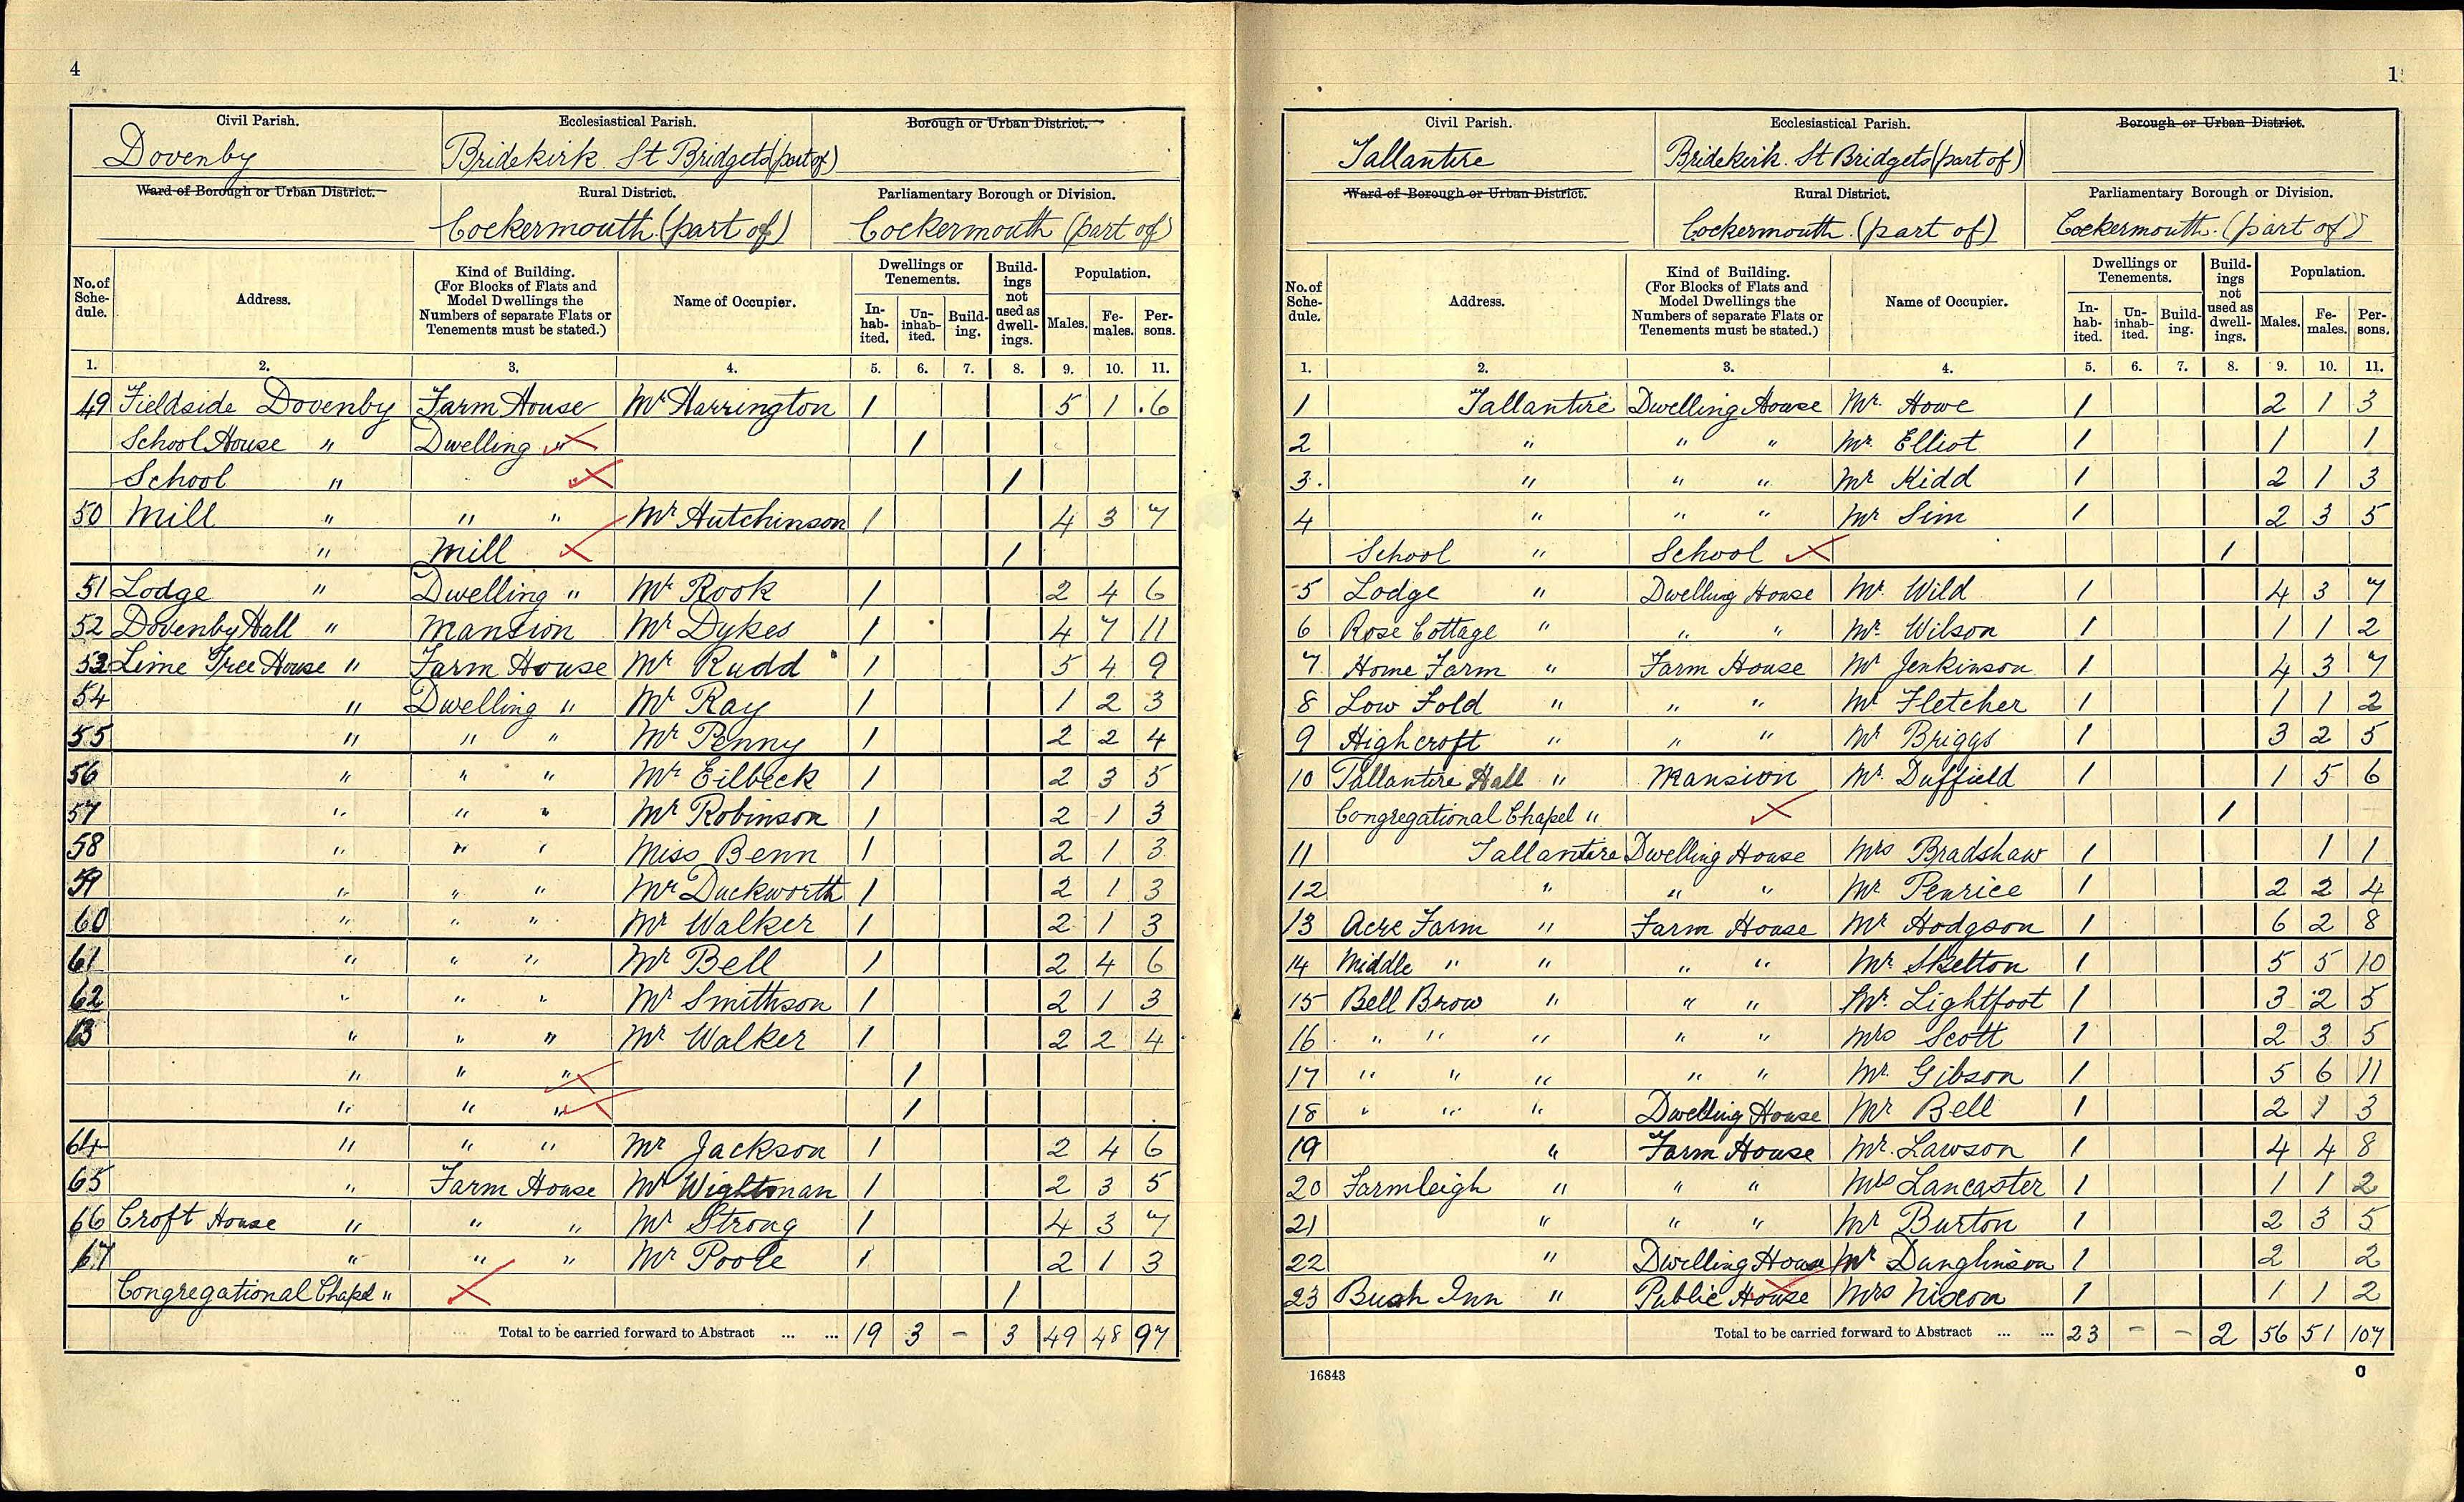 4
Civil Parish. Ecclesiastical Parish. Borough or Urban District.
Dovenby Bridekirk St Bridgets (part of)
Ward of Borough or Urban District. Rural District. Parliamentary Borough or Division.
Cockermouth (part of) Cockermouth (part of)
No. of Schedule. Address. Kind of Building. (For Blocks of Flats and Model Dwellings the Numbers of separate Flats or Tenements must be stated.) Name of Occupier. Dwellings or Tenements. Inhabited. Uninhabited. Building. Buildings not used as dwellings. Population. Males. Females. Persons.
1. 2. 3. 4. 5. 6. 7. 8. 9. 10. 11.
49 Fieldside Dovenby Farm House Mr Harrington 1 5 1 6
School House " Dwelling " 1
School " 1
50 Mill " " " Mr Hutchinson 1 4 3 7
" Mill 1
51 Lodge " Dwelling " Mr Rook 1 2 4 6
52 Dovenby Hall " Mansion Mr Dykes 1 4 7 11
53 Lime Tree House " Farm House Mr Rudd 1 5 4 9
54 " Dwelling " Mr Ray 1 1 2 3
55 " " " Mr Penny 1 2 2 4
56 " " " Mr Eilbeck 1 2 3 5
57 " " " Mr Robinson 1 2 1 3
58 " " " Miss Benn 1 2 1 3
59 " " " Mr Duckworth 1 2 1 3
60 " " " Mr Walker 1 2 1 3
61 " " " Mr Bell 1 2 4 6
62 " " " Mr Smithson 1 2 1 3
63 " " " Mr Walker 1 2 2 4
" " " 1
" " " 1
64 " " " Mr Jackson 1 2 4 6
65 " Farm House Mr Wightman 1 2 3 5
66 Croft House " " " Mr Strong 1 4 3 7
67 " " " Mr Poole 1 2 1 3
Congregational Chapel " 1
Total to be carried forward to Abstract ... ... 19 3 - 3 49 48 97
1
Civil Parish. Ecclesiastical Parish. Borough or Urban District.
Tallantire Bridekirk. St Bridgets (part of)
Ward of Borough or Urban District. Rural District. Parliamentary Borough or Division.
Cockermouth (part of) Cockermouth. (part of)
No. of Schedule. Address. Kind of Building. (For Blocks of Flats and Model Dwellings the Numbers of separate Flats or Tenements must be stated.) Name of Occupier. Dwellings or Tenements. Inhabited. Uninhabited. Building. Buildings not used as dwellings. Population. Males. Females. Persons.
1. 2. 3. 4. 5. 6. 7. 8. 9. 10. 11.
1 Tallantire Dwelling House Mr. Howe 1 2 1 3
2 " " " Mr. Elliot 1 1 1
3. " " " Mr Kidd 1 2 1 3
4 " " " Mr Sim 1 2 3 5
School " School 1
5 Lodge " Dwelling House Mr. Wild 1 4 3 7
6 Rose Cottage " " " Mr. Wilson 1 1 1 2
7 Home Farm " Farm House Mr Jenkinson 1 4 3 7
8 Low Fold " " " Mr Fletcher 1 1 1 2
9 Highcroft " " " Mr Briggs 1 3 2 5
10 Tallantire Hall " Mansion Mr. Duffield 1 1 5 6
Congregational Chapel " 1
11 Tallantire Dwelling House Mrs Bradshaw 1 1 1
12 " " " Mr Penrice 1 2 2 4
13 Acre Farm " Farm House Mr Hodgson 1 6 2 8
14 Middle " " " " Mr Skelton 1 5 5 10
15 Bell Brow " " " Mr. Lightfoot 1 3 2 5
16 " " " " " Mrs Scott 1 2 3 5
17 " " " " " Mr. Gibson 1 5 6 11
18 " " " Dwelling House Mr Bell 1 2 1 3
19 " Farm House Mr. Lawson 1 4 4 8
20 Farmleigh " " " Mrs Lancaster 1 1 1 2
21 " " " Mr Burton 1 2 3 5
22 " Dwelling House Mr Danglinson 1 2 2
23 Bush Inn " Public House Mrs Nixon 1 1 1 2
Total to be carried forward to Abstract ... ... 23 - - 2 56 51 107
16843
O